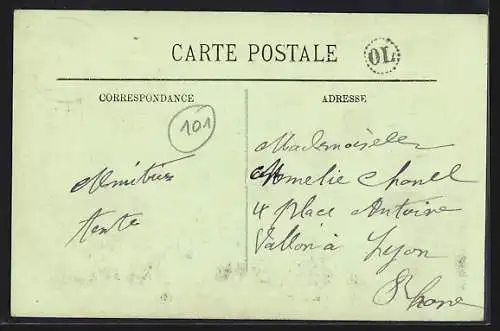 CARTE POSTALE
OL
CORRESPONDANCE
ADRESSE
101
tente
Mademoiselle
Amelie Chanel
4 Place Antoine
Vallon à Lyon
Rhone